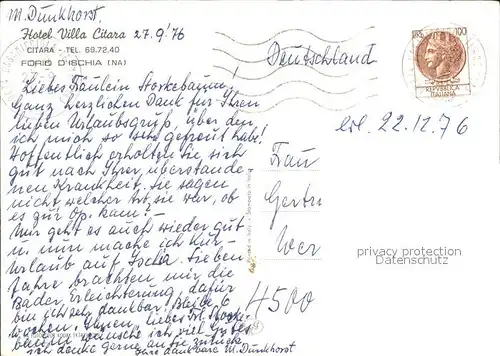 M. Dunkhorst,
Hotel Villa Citara 27.9.'76
CITARA - TEL. 69.72.40
FORIO D'ISCHIA (NA)
Deutschland
LIRE 100
REPVBBLICA
ITALIANA
Liebes Fräulein Storkebaum!
Ganz herzlichen Dank für Ihren
lieben Urlaubsgruß, über den
ich mich so sehr gefreut habe!
Hoffentlich erholten Sie sich
gut nach Ihrer überstande
nen Krankheit. Sie sagen
nicht welcher Art sie war, ob
es zur Op. kam? -
Mir geht es auch wieder gut
u. nun mache ich Kur-
Urlaub auf Ischia. Sieben
Jahre brachten mir die
Bäder Erleichterung, dafür
bin ich sehr dankbar! Bleibe 6
Wochen. Ihnen, liebes Frl. Storke-
baum wünsche ich viel Gutes
ich danke gerne an Sie zurück
Ihre dankbare M. Dunkhorst
erl. 22.12.76
Frau
Gertru
Wer
4500
privacy protection
Datenschutz